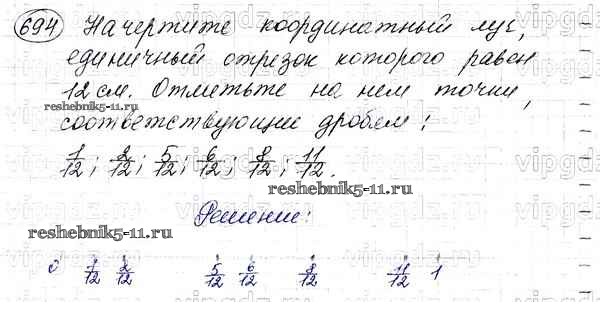 694 Начертите координатный луч,
единичный отрезок которого равен
12 см. Отметьте на нем точки,
reshebnik5-11.ru
соответствующие дробям:
1/12; 2/12; 5/12; 6/12; 8/12; 11/12.
reshebnik5-11.ru
Решение:
reshebnik5-11.ru
0 1/12 2/12 5/12 6/12 8/12 11/12 1